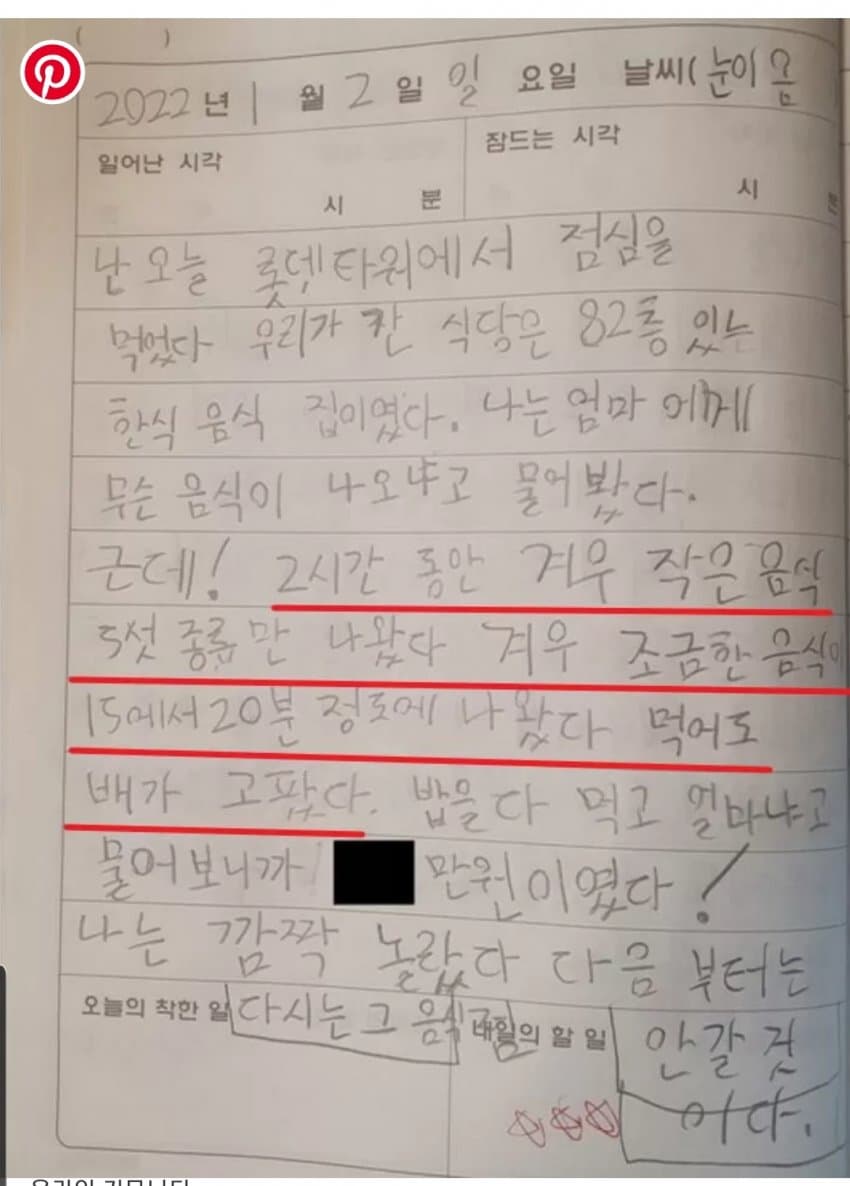 ( )
2022 년 1 월 2 일 일 요일 날씨( 눈이 옴
일어난 시각 잠드는 시각
시 분 시 분
난 오늘 롯데타워에서 점심을
먹었다 우리가 간 식당은 82층 있는
한식 음식 집이였다. 나는 엄마 에게
무슨 음식이 나오냐고 물어 봤다.
근데! 2시간 동안 겨우 작은 음식
5섯 종류만 나왔다 겨우 조금한 음식이
15에서 20분 정도에 나왔다 먹어도
배가 고팠다. 밥을 다 먹고 얼마냐고
물어보니까 만원이였다!
나는 깜짝 놀랐다 다음 부터는
오늘의 착한 일 다시는 그 음식집 내일의 할 일 안갈 것
이다.